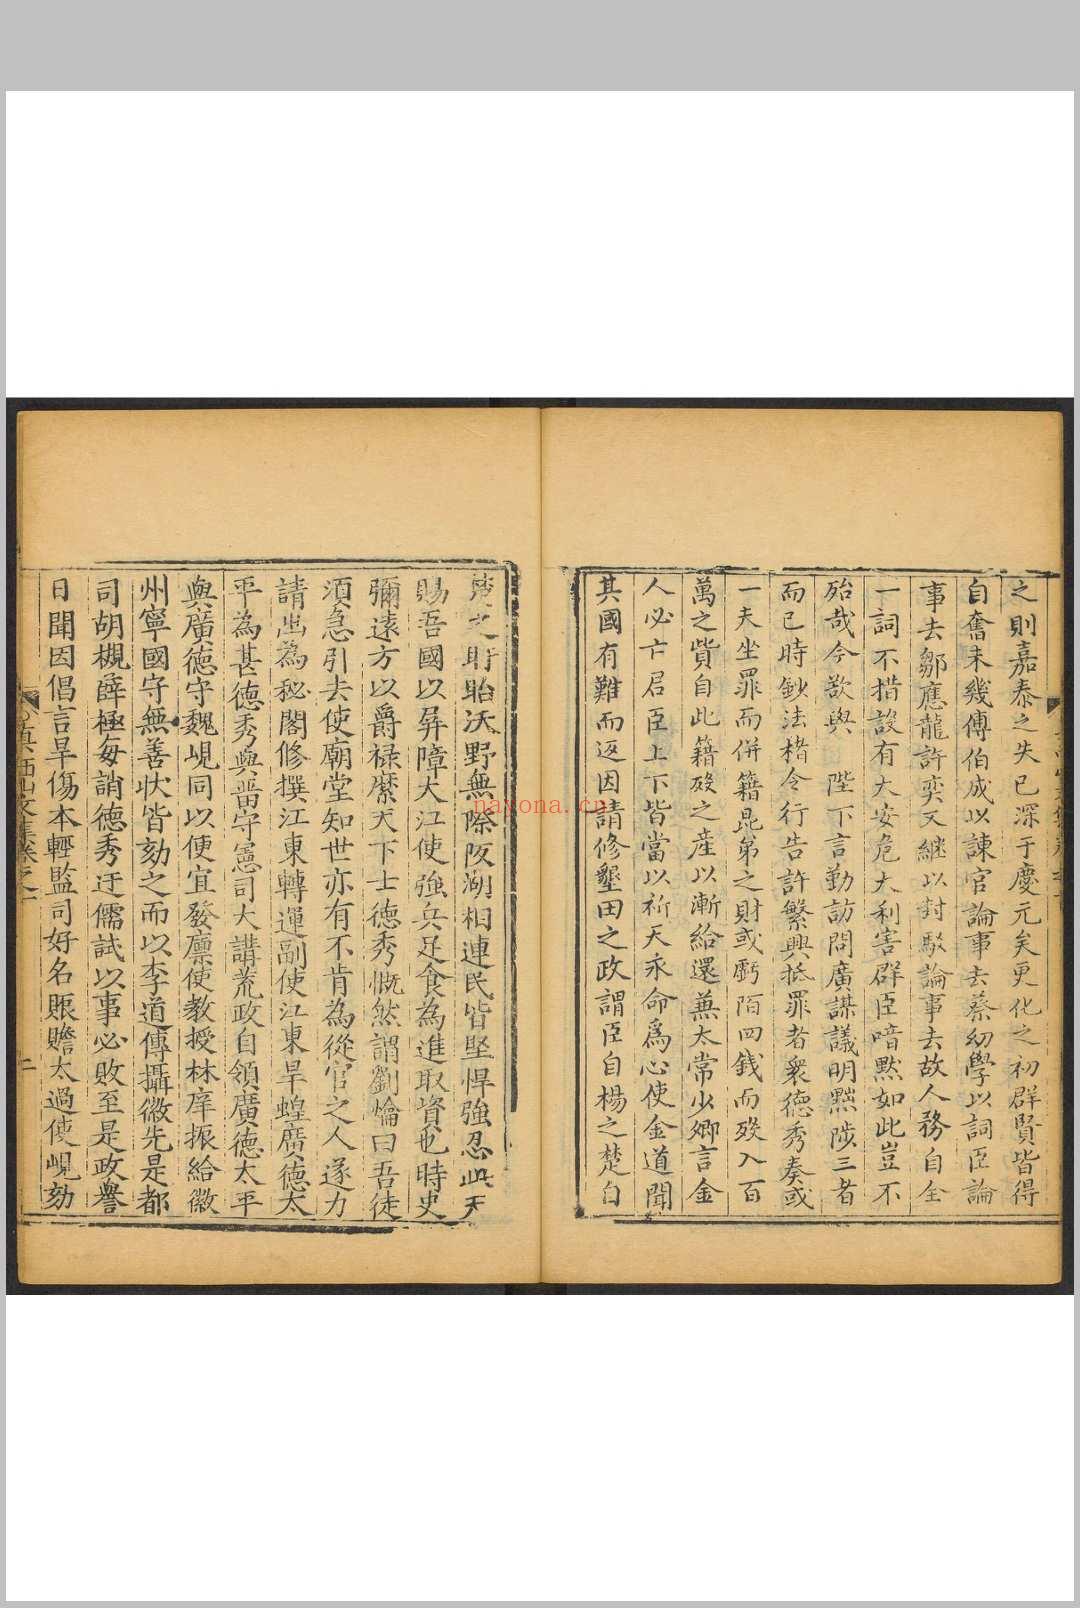 之則嘉泰之失已深于慶元矣更化之初群賢皆得
自奮未幾傅伯成以諫官論事去蔡幼學以詞臣論
事去鄒應龍許奕又繼以封駁論事去故人務自全
一詞不措設有大安危大利害群臣喑默如此豈不
殆哉今欲與陛下言勤訪問廣謀議明黜陟三者
而已時鈔法楮令行告訐繁興抵罪者衆德秀奏或
一夫坐罪而併籍昆弟之財或虧陌四錢而歿入百
萬之貲自此籍歿之産以漸給還兼太常少卿言金
人必亡君臣上下皆當以祈天永命爲心使金道聞
其國有難而返因請修墾田之政謂臣自楊之楚自
楚之盱眙沃野無際陂湖相連民皆堅悍強忍此天
賜吾國以屏障大江使強兵足食為進取資也時史
彌遠方以爵禄縻天下士德秀慨然謂劉爚曰吾徒
須急引去使廟堂知世亦有不肯為從官之人遂力
請出為秘閣修撰江東轉運副使江東旱蝗廣德太
平為甚德秀與畱守憲司大講荒政自領廣德太平
與廣德守魏峴同以便宜發廪使教授林庠振給徽
州寧國守無善状皆劾之而以李道傳攝徽先是都
司胡槻薛極每誚德秀迂儒試以事必敗至是政譽
日聞因倡言旱傷本輕監司好名賑贍太過使峴劾
真西山文集卷之一
二
nayona.cn